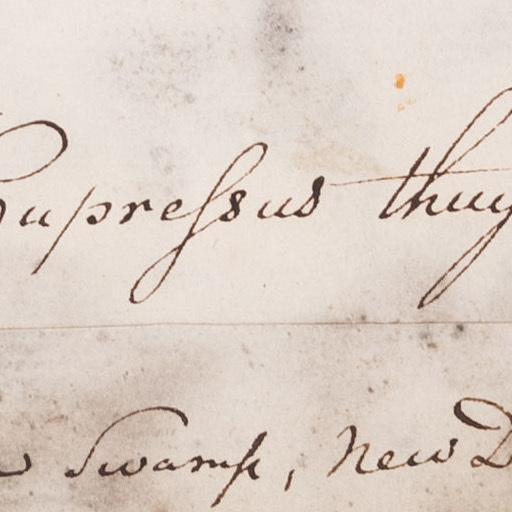 Cupressus thuy
w Swamp, New D